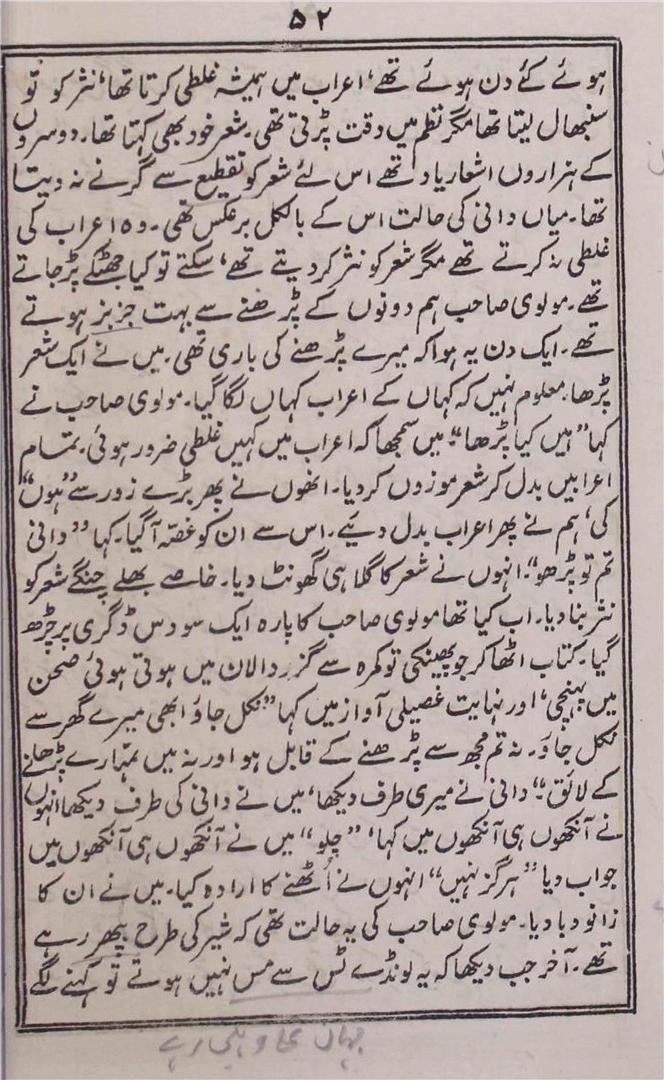 ۵۲
ہوئے کئے دن ہوئے تھے، اعراب میں ہمیشہ غلطی کرتا تھا، نثر کو تو
سنبھال لیتا تھا مگر نظم میں دقت پڑتی تھی۔ شعر خود بھی کہتا تھا۔ دوسروں
کے ہزاروں اشعار یاد تھے اس لئے شعر کو تقطیع سے گرنے نہ دیتا
تھا۔ میاں دانی کی حالت اس کے بالکل برعکس تھی۔ وہ اعراب کی
غلطی نہ کرتے تھے مگر شعر کو نثر کر دیتے تھے، سکتے تو کیا جھٹکے پڑ جاتے
تھے۔ مولوی صاحب ہم دونوں کے پڑھنے سے بہت جز بز ہوتے
تھے۔ ایک دن یہ ہوا کہ میرے پڑھنے کی باری تھی۔ میں نے ایک شعر
پڑھا، معلوم نہیں کہ کہاں کے اعراب کہاں لگا گیا۔ مولوی صاحب نے
کہا "ہیں کیا پڑھا"؟ میں سمجھا کہ اعراب میں کہیں غلطی ضرور ہوئی۔ تمام
اعرابیں بدل کر شعر موزوں کر دیا۔ انھوں نے پھر بڑے زور سے "ہوں"
کی، ہم نے پھر اعراب بدل دئیے۔ اس سے ان کو غصّہ آ گیا۔ کہا "دانی
تم تو پڑھو"۔ انہوں نے شعر کا گلا ہی گھونٹ دیا۔ خاصے بھلے چنگے شعر کو
نثر بنا دیا۔ اب کیا تھا مولوی صاحب کا پارہ ایک سو دس ڈگری پر چڑھ
گیا۔ کتاب اٹھا کر جو پھینکی تو کمرہ سے گزر دالان میں ہوتی ہوئی صحن
میں پہنچی، اور نہایت غصیلی آواز میں کہا "نکل جاؤ ابھی میرے گھر سے
نکل جاؤ۔ نہ تم مجھ سے پڑھنے کے قابل ہو اور نہ میں تمہارے پڑھانے
کے لائق"۔ دانی نے میری طرف دیکھا، میں نے دانی کی طرف دیکھا انہوں
نے آنکھوں ہی آنکھوں میں کہا، "چلو" میں نے آنکھوں ہی آنکھوں میں
جواب دیا "ہرگز نہیں" انہوں نے اُٹھنے کا ارادہ کیا۔ میں نے ان کا
زانو دبا دیا۔ مولوی صاحب کی یہ حالت تھی کہ شیر کی طرح بپھر رہے
تھے۔ آخر جب دیکھا کہ یہ لونڈے ٹس سے مس نہیں ہوتے تو کہنے لگے
جہاں رہے